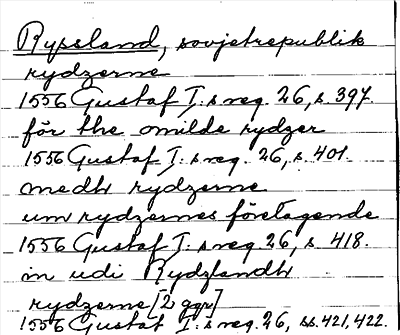 Ryssland, sovjetrepublik
rydzerne
1556 Gustaf I:s reg. 26, s. 397.
för the omilde rydzer
1556 Gustaf I:s reg. 26, s. 401.
medh rydzerne
um rydzernes företagende
1556 Gustaf I:s reg. 26, s. 418.
in udi Rydzlandh
rydzerne [2 ggr]
1556 Gustaf I:s reg. 26, ss. 421, 422.